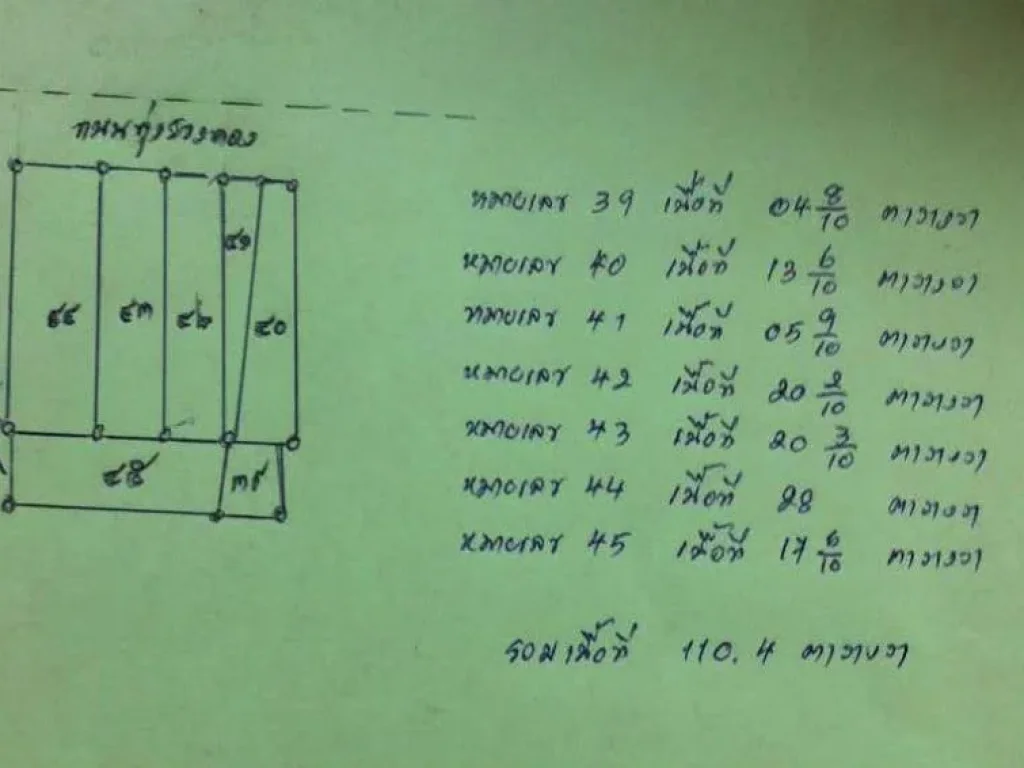 ถนนทุ่งรวงทอง
๔๑
๔๔ ๔๓ ๔๒ ๔๐
๔๕ ๓๙
หมายเลข 39 เนื้อที่ 04 8/10 ตารางวา
หมายเลข 40 เนื้อที่ 13 6/10 ตารางวา
หมายเลข 41 เนื้อที่ 05 9/10 ตารางวา
หมายเลข 42 เนื้อที่ 20 2/10 ตารางวา
หมายเลข 43 เนื้อที่ 20 3/10 ตารางวา
หมายเลข 44 เนื้อที่ 28 ตารางวา
หมายเลข 45 เนื้อที่ 17 6/10 ตารางวา
รวมเนื้อที่ 110.4 ตารางวา